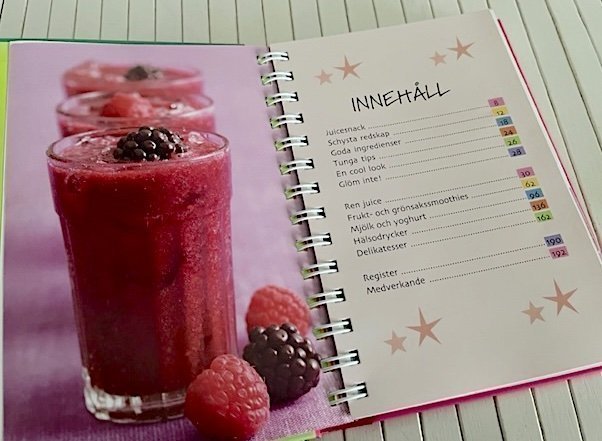 INNEHÅLL
Juicesnack 8
Schysta redskap 12
Goda ingredienser 18
Tunga tips 24
En cool look 26
Glöm inte! 28
Ren juice 30
Frukt- och grönsakssmoothies 62
Mjölk och yoghurt 96
Hälsodrycker 136
Delikatesser 162
Register 190
Medverkande 192